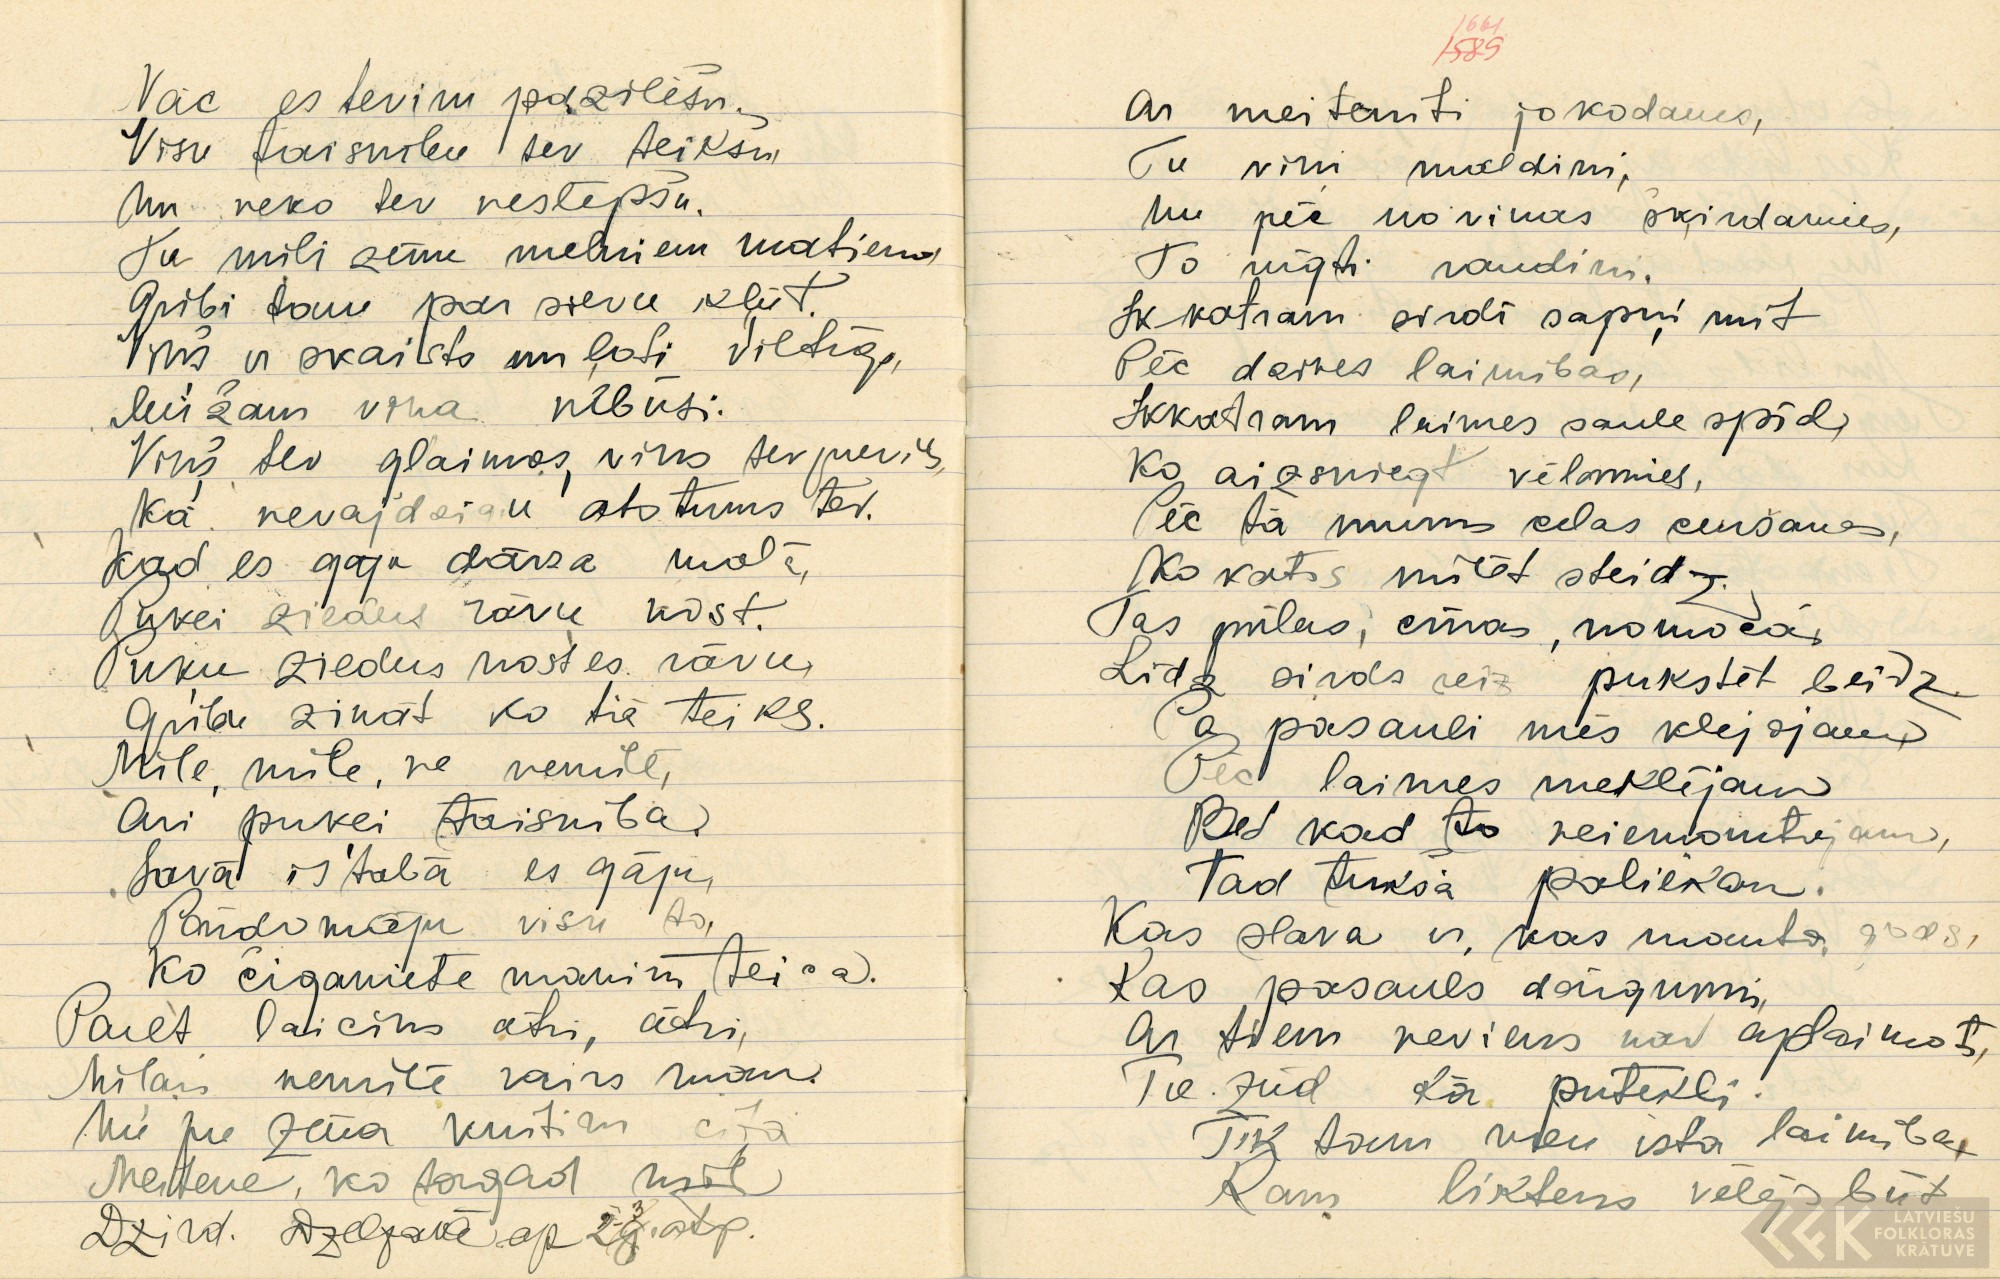 Nāc es tevim pazīlēšu.
Visu taisnību tev teikšu,
Un neko tev neslēpšu.
Tu mīli zēnu melniem matiem,
Gribi tam par sievu kļūt.
Viņš ir skaists un ļoti viltīgs,
Mūžam viņa nebūsi.
Viņš tev glaimos, viņš tev pievils,
Kā nevajdzīgu atstums tev.
Kad es gāju dārza malā,
Puķei ziedus rāvu nost.
Puķu ziedus nost es rāvu,
Gribu zināt ko tie teiks.
Mīle, mīle, ne nemīle,
Ari puķei taisnība.
Savā istabā es gāju,
Pārdomāju visu to,
Ko čiganiete manim teica.
Paiet laiciņš ātri, ātri,
Mīļais nemīlē vairs man.
Nu pie zēna krūtīm citā
Meitene, ko tagad mīl
Dzird. Dzelzavē ap 23. atp.
1661
1589
Ar meitenīti jokodams,
Tu viņi maldini,
Un pēc no viņas šķirdamies,
To rūgti raudini.
Ikkatram sirdī sapņi mīt
Pēc dzīves laimības,
Ikkatram laimes saule spīd,
Ko aizsniegt vēlamies,
Pēc tā mums ceļas censšanas,
Ko katrs mīlēt steidz.
Tas pūlas, cīnas, nomocās
Līdz sirds reiz pukstēt beidz
Pa pasauli mēs klejojam,
Pēc laimes meklējam
Bet kad to neiemantojam,
Tad tukšā paliekam.
Kas slava ir, kas manta, gods,
Kas pasaules dārgumi,
Ar tiem neviens nav aplaimots,
Tie zūd kā putekļi.
Tik tam vien īsta laimība,
Kam liktens vēlējs būt
LATVIEŠU
FOLKLORAS
KRĀTUVE